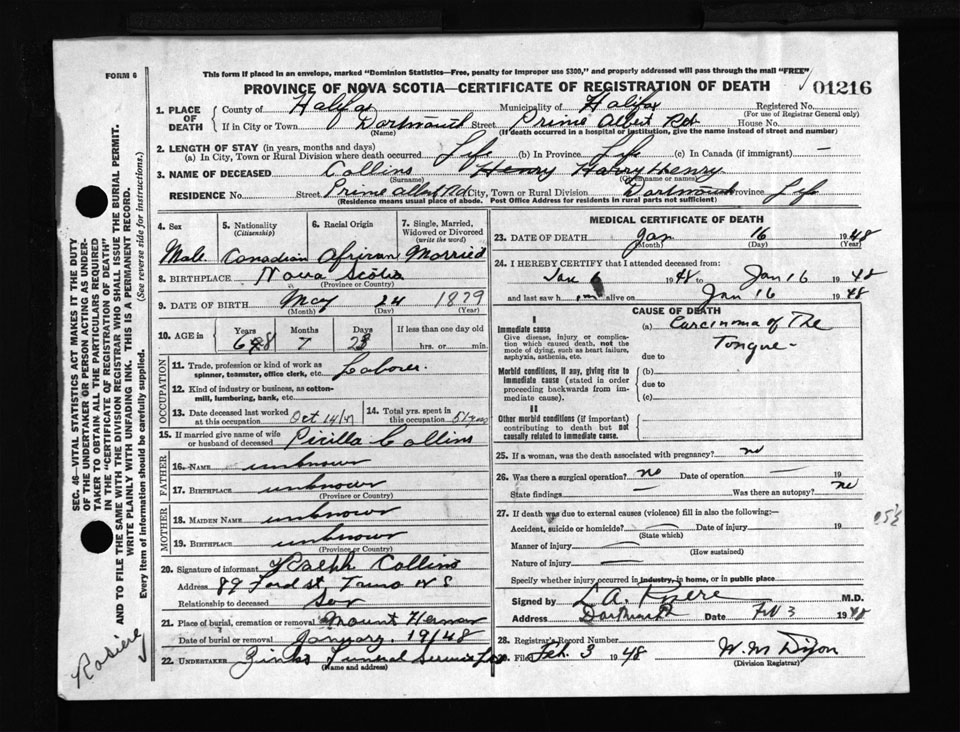 This form if placed in an envelope, marked "Dominion Statistics—Free, penalty for improper use $300," and properly addressed will pass through the mail "FREE"
FORM 6
PROVINCE OF NOVA SCOTIA—CERTIFICATE OF REGISTRATION OF DEATH
01216
1. PLACE OF DEATH
County of Halifax Municipality of Halifax Registered No.
(For use of Registrar General only)
If in City or Town Dartmouth Street Prince Albert Rd House No.
(Name) (If death occurred in a hospital or institution, give the name instead of street and number)
2. LENGTH OF STAY (in years, months and days)
(a) In City, Town or Rural Division where death occurred Life (b) In Province Life (c) In Canada (if immigrant) —
3. NAME OF DECEASED Collins Henry Harry Henry
(Surname) (Given name or names)
RESIDENCE No. Street Prince Albert Rd City, Town or Rural Division Dartmouth Province Life
(Residence means usual place of abode. Post Office Address for residents in rural parts not sufficient)
4. Sex 5. Nationality (Citizenship) 6. Racial Origin 7. Single, Married, Widowed or Divorced (write the word)
Male Canadian African Married
8. BIRTHPLACE Nova Scotia
(Province or Country)
9. DATE OF BIRTH May 24 1879
(Month) (Day) (Year)
10. AGE in Years Months Days If less than one day old
68 7 23 hrs. or min.
OCCUPATION
11. Trade, profession or kind of work as spinner, teamster, office clerk, etc. Laborer
12. Kind of industry or business, as cotton-mill, lumbering, bank, etc.
13. Date deceased last worked at this occupation Oct 14/47 14. Total yrs. spent in this occupation 51 years
15. If married give name of wife or husband of deceased Pricilla Collins
FATHER
16. NAME unknown
17. BIRTHPLACE unknown
(Province or Country)
MOTHER
18. MAIDEN NAME unknown
19. BIRTHPLACE unknown
(Province or Country)
20. Signature of informant Ralph Collins
Address 89 Ford St Truro N S
Relationship to deceased Son
21. Place of burial, cremation or removal Mount Hermon
Date of burial or removal January 19/48
22. UNDERTAKER Zinks Funeral Service
(Name and address)
MEDICAL CERTIFICATE OF DEATH
23. DATE OF DEATH Jan 16 1948
(Month) (Day) (Year)
24. I HEREBY CERTIFY that I attended deceased from:
Jan 6 1948 to Jan 16 1948
and last saw him alive on Jan 16 1948
CAUSE OF DEATH
I
Immediate cause
Give disease, injury or complication which caused death, not the mode of dying, such as heart failure, asphyxia, asthenia, etc.
(a) Carcinoma of The Tongue
due to
Morbid conditions, if any, giving rise to immediate cause (stated in order proceeding backwards from immediate cause).
(b)
due to
(c)
II
Other morbid conditions (if important) contributing to death but not causally related to immediate cause.
25. If a woman, was the death associated with pregnancy? no
26. Was there a surgical operation? no Date of operation — 19
State findings — Was there an autopsy? no
27. If death was due to external causes (violence) fill in also the following:—
Accident, suicide or homicide? — Date of injury — 19
(State which)
Manner of injury —
(How sustained)
Nature of injury —
Specify whether injury occurred in industry, in home, or in public place
Signed by L A M.D.
Address Dartmouth Date Feb 3 1948
28. Registrar's Record Number
Filed Feb. 3 1948 W. M Dixon
(Division Registrar)
SEC. 46—VITAL STATISTICS ACT MAKES IT THE DUTY OF THE UNDERTAKER OR PERSON ACTING AS UNDERTAKER TO OBTAIN ALL THE PARTICULARS REQUIRED IN THE "CERTIFICATE OF REGISTRATION OF DEATH"
AND TO FILE THE SAME WITH THE DIVISION REGISTRAR WHO SHALL ISSUE THE BURIAL PERMIT.
WRITE PLAINLY WITH UNFADING INK. THIS IS A PERMANENT RECORD.
Every item of information should be carefully supplied. (See reverse side for instructions.)